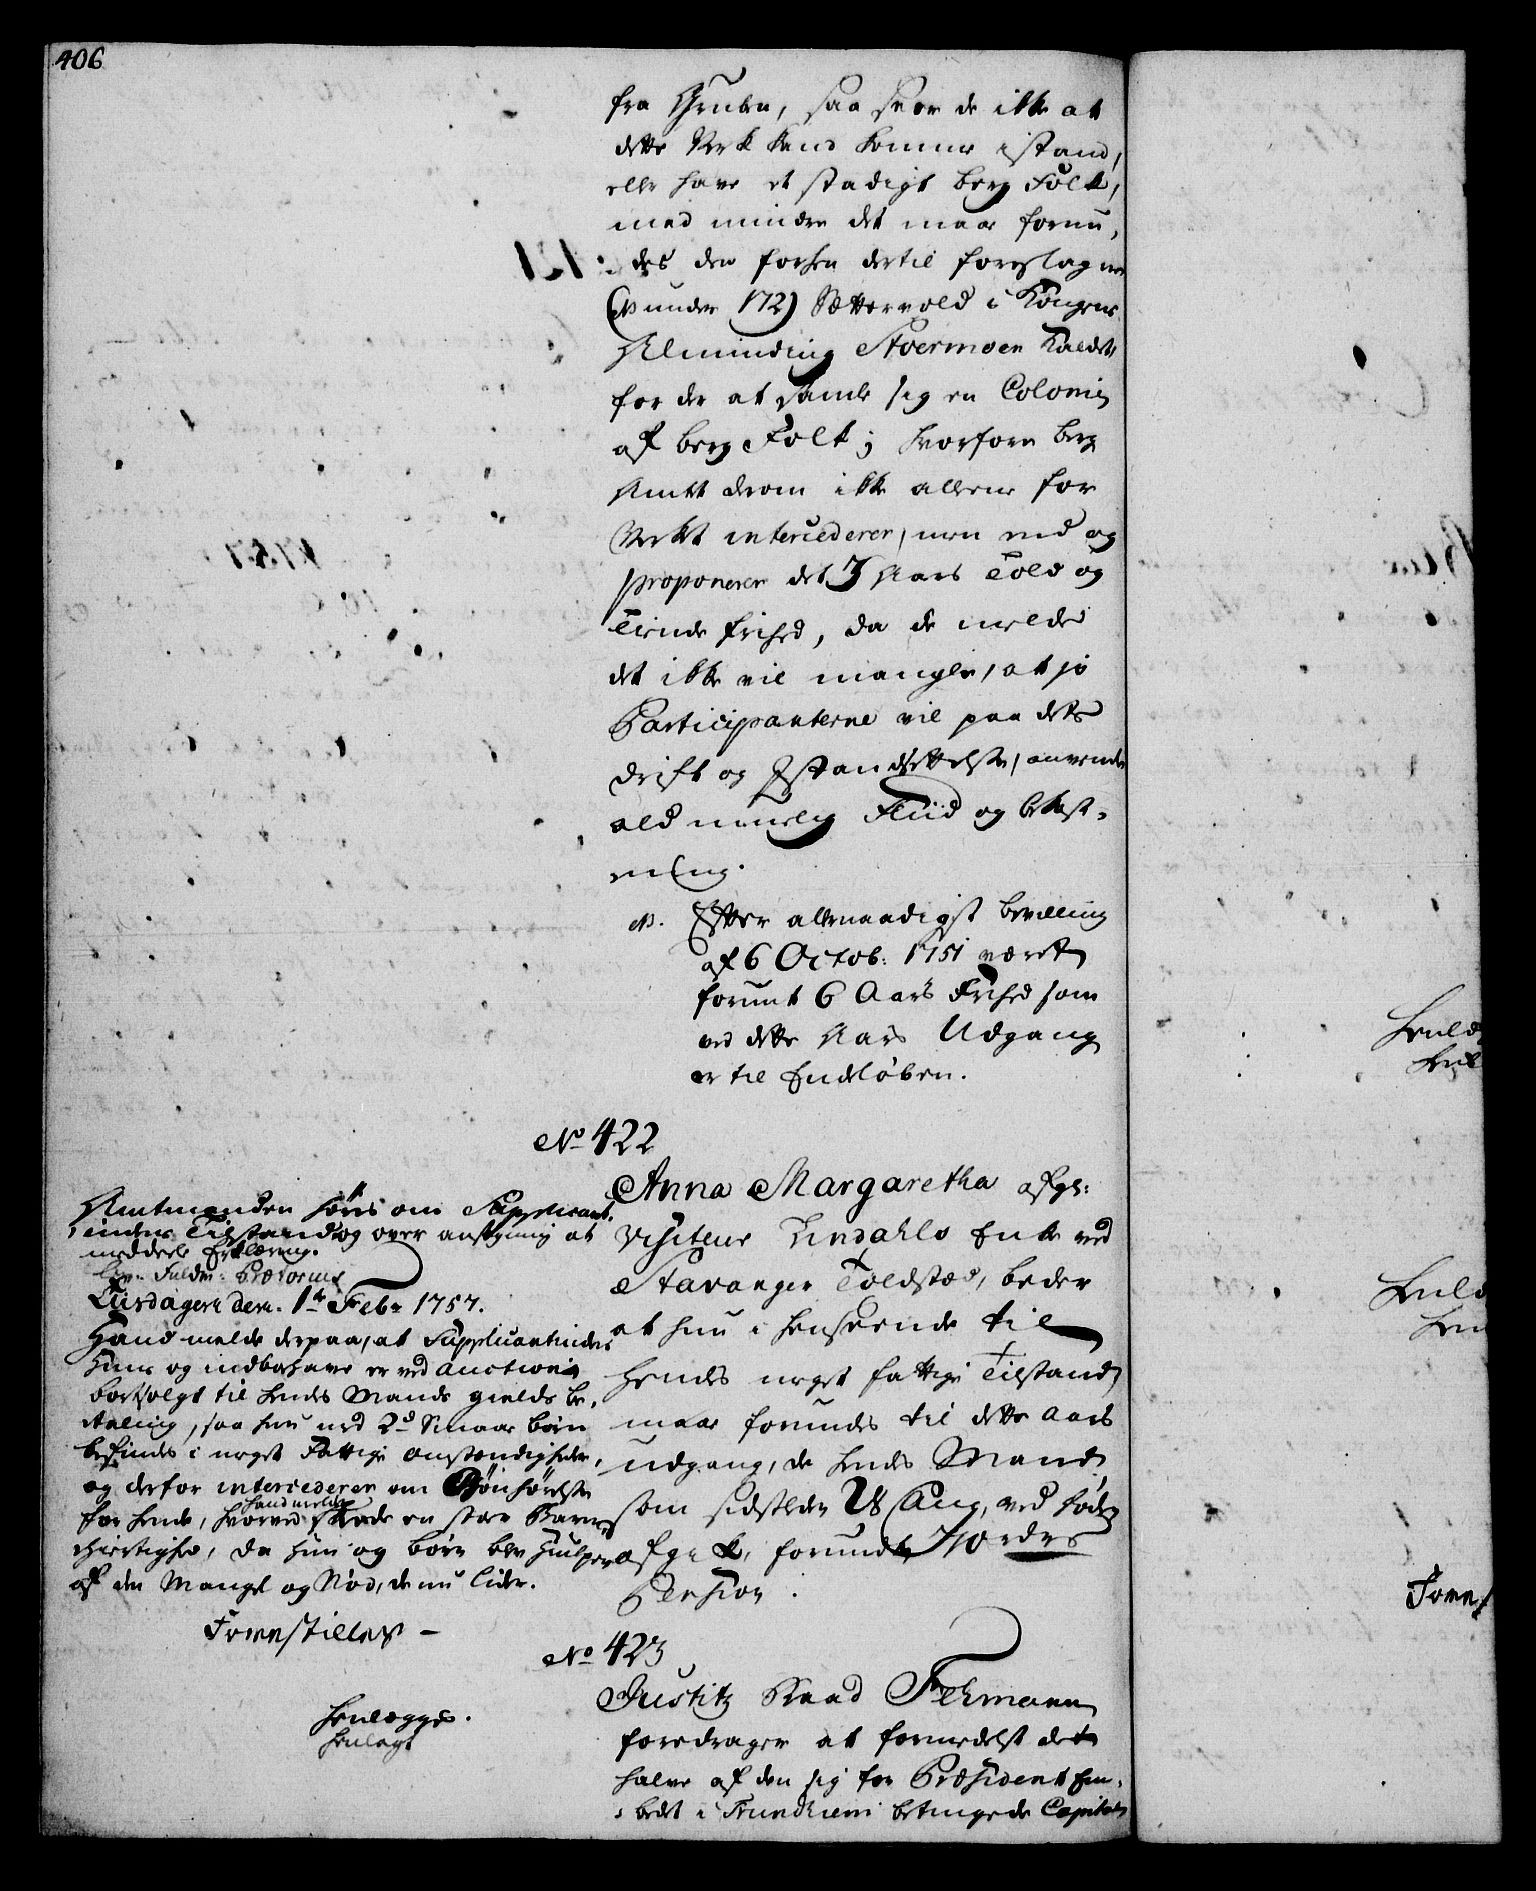 406
fra Gruben, saa seer de ikke at
dette Verk kand komme i stand,
eller have et stadigt berg Folk,
med mindre det maa forun,
des den forhen dertil foreslagne
(No under 172) Sættervold i Kongens
Alminding Stoermoen kaldet,
for der at samle sig en Colonie
af berg Folk; hvorfore berg
Amtet derom ikke allene for
Verket intercederer, men end og
proponerer det 3 Aars Told og
Tiende frihed, da de melder
det ikke vil mangle, at jo
Participanterne vil paa dets
drift og Istandsættelse, anvende
ald muelig Fliid og bekost-
ning.
NB. Efter allernaadigst bevilling
af 6 Octob: 1751 været
forunt 6 Aars Frihed som
ved dette Aars Udgang
er til Endeløben.
No 422
Anna Margaretha afg:
Visiteur Lindahls Enke ved
Stavanger Toldsted, beder
at hun i henseende til
hendes meget fattige Tilstand
maa forundes til dette Aars
udgang, da hendes Mand
som sidstleden 28 Aug, ved døden
afgik, forundte 40 rdrs
Pension.
Amtmanden høres om Supplicant-
indens Tilstand og over ansøgning at
meddele Erklæring.
Fuldm: Prætorius
Tiirsdagen den 1te Febr 1757.
Hand melder derpaa, at Supplicantindens
Huus og indboehave er ved Auction
bortsolgt til hendes Mands gields be-
taling, saa hun med 2de Smaae børn
befindes i meget Fattige omstændigheder,
og derfor intercederer om Bønhørelse
for hende, hvorved hand melder skeede en stor Barm-
hiertighed, da hun og børn blev hiulpen
af den Mangel og Nød, de nu lider.
Forestilles -
No 423
Justitz Raad Fehmann
foredrager at formedelst det
halve af den sig for Præsident Em-
bedet i Trundhiem betingede Capital
Henlægges.
henlagt